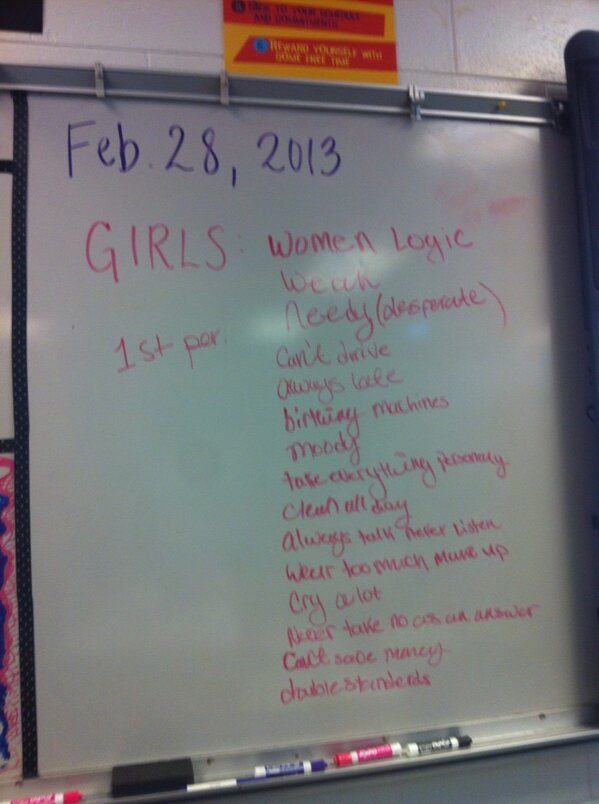 5 STICK TO YOUR SCHEDULE
AND COMMITMENTS
6 REWARD YOURSELF WITH
SOME FREE TIME
Feb. 28, 2013
GIRLS: Women Logic
Weak
Needy (desperate)
1st per.
Can't drive
always late
birthing machines
Moody
take everything personaly
clean all day
always talk never listen
Wear too much make up
Cry a lot
Never take no as an answer
Can't save money
double standerds
EXPO